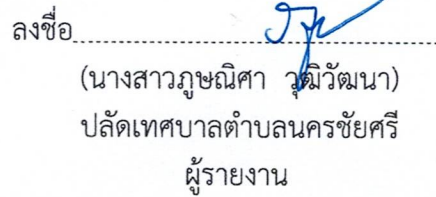 ลงชื่อ
(นางสาวภูษณิศา วุฒิวัฒนา)
ปลัดเทศบาลตำบลนครชัยศรี
ผู้รายงาน